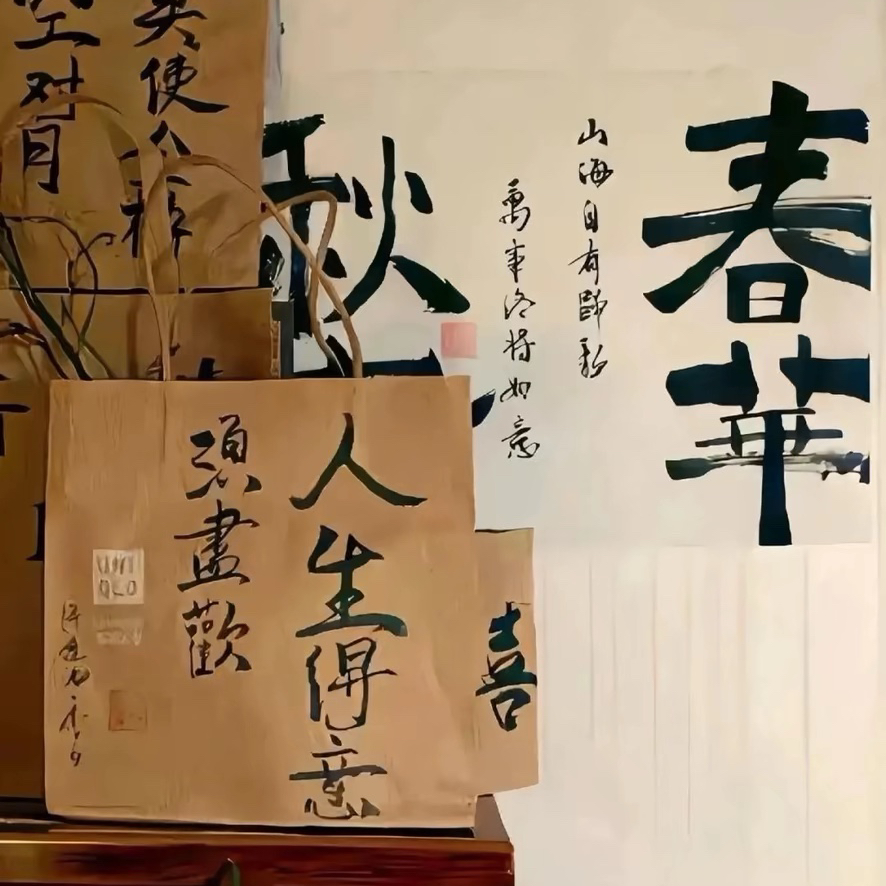 春華
秋
山海自有歸彩
萬事必將如意
莫使金樽
空對月
人生得意
須盡歡
喜
UNI
QLO